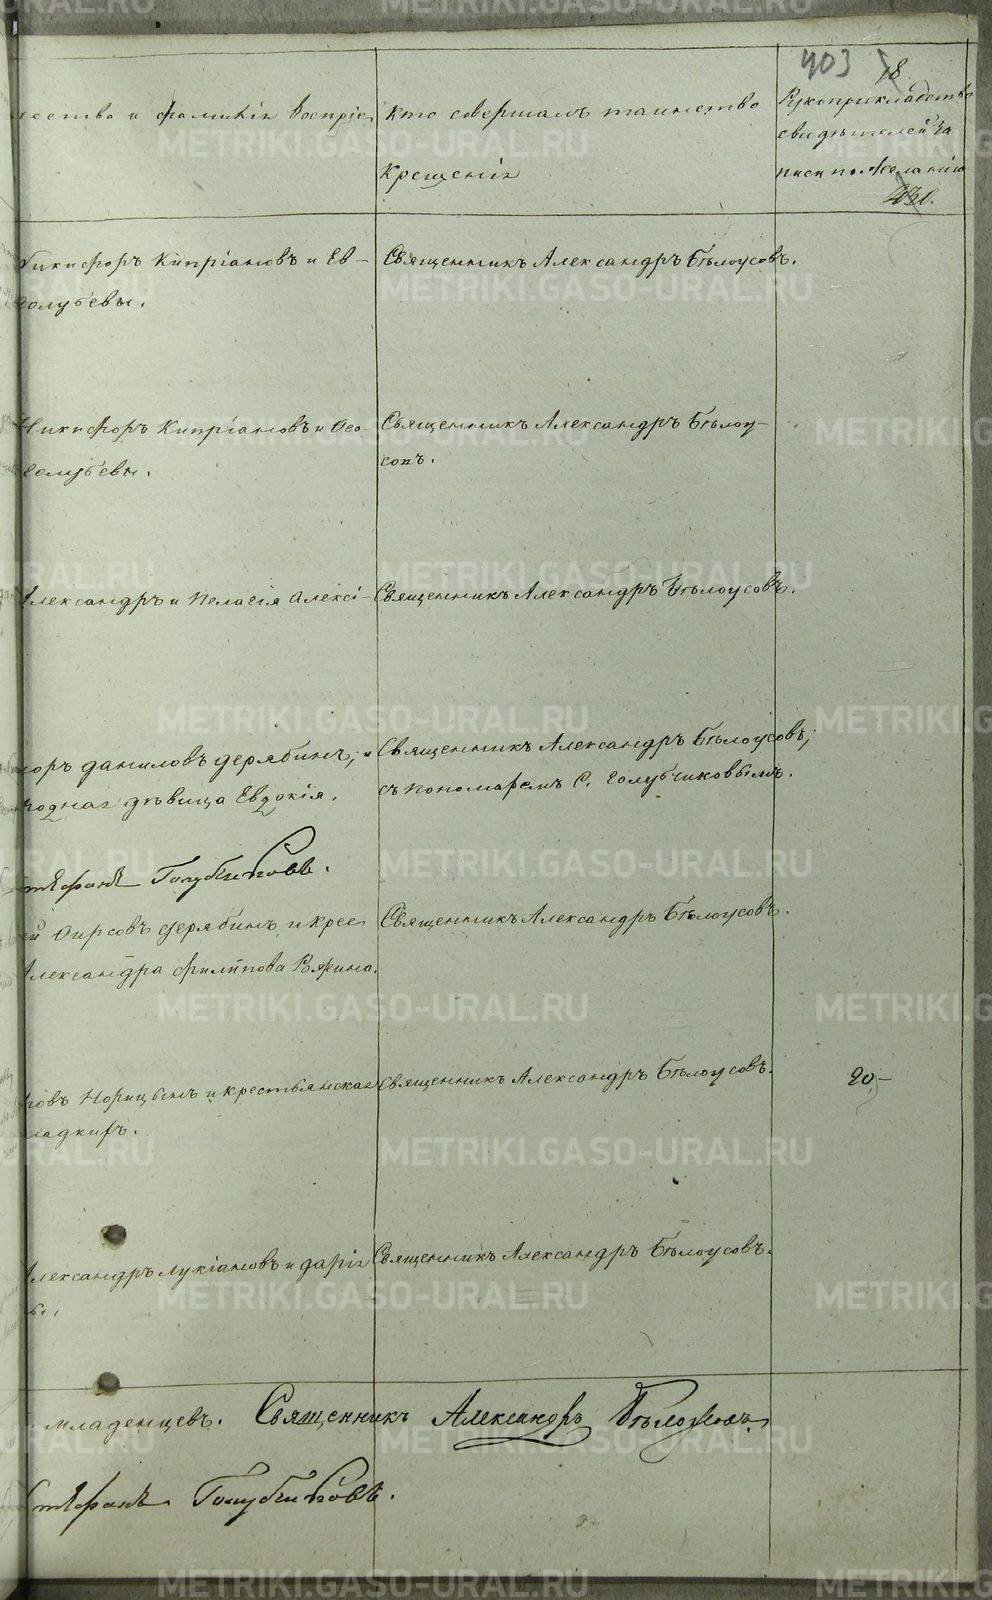 403 18
чество и фамилiи воспрiе
Кто совершалъ таинство
крещенiя
Рукоприкладство
свидѣтелей за
писи по желанiю
Никифоръ Кипрiановъ и Ев-
Голубевы.
Священникъ Александръ Бѣлоусовъ.
Никифоръ Кипрiановъ и Ѳео-
Голубевы.
Священникъ Александръ Бѣлоу-
совъ.
Александръ и Пелагiя Алексi-
Священникъ Александръ Бѣлоусовъ.
оръ Даниловъ Дерябинъ, и
родная дѣвица Евдокiя.
Священникъ Александръ Бѣлоусовъ,
съ пономаремъ С. Голубчиковымъ.
Стефанъ Голубчиковъ.
й Фирсовъ Дерябинъ и крес
Александра Филипова Ряжина.
Священникъ Александръ Бѣлоусовъ.
новъ Норицынъ и крестьянская
Гладкихъ.
Священникъ Александръ Бѣлоусовъ.
20,-
Александръ Лукiановъ и Дарiя
ы.
Священникъ Александръ Бѣлоусовъ.
младенцевъ. Священникъ Александръ Бѣлоусовъ
Стефанъ Голубчиковъ.
METRIKI.GASO-URAL.RU